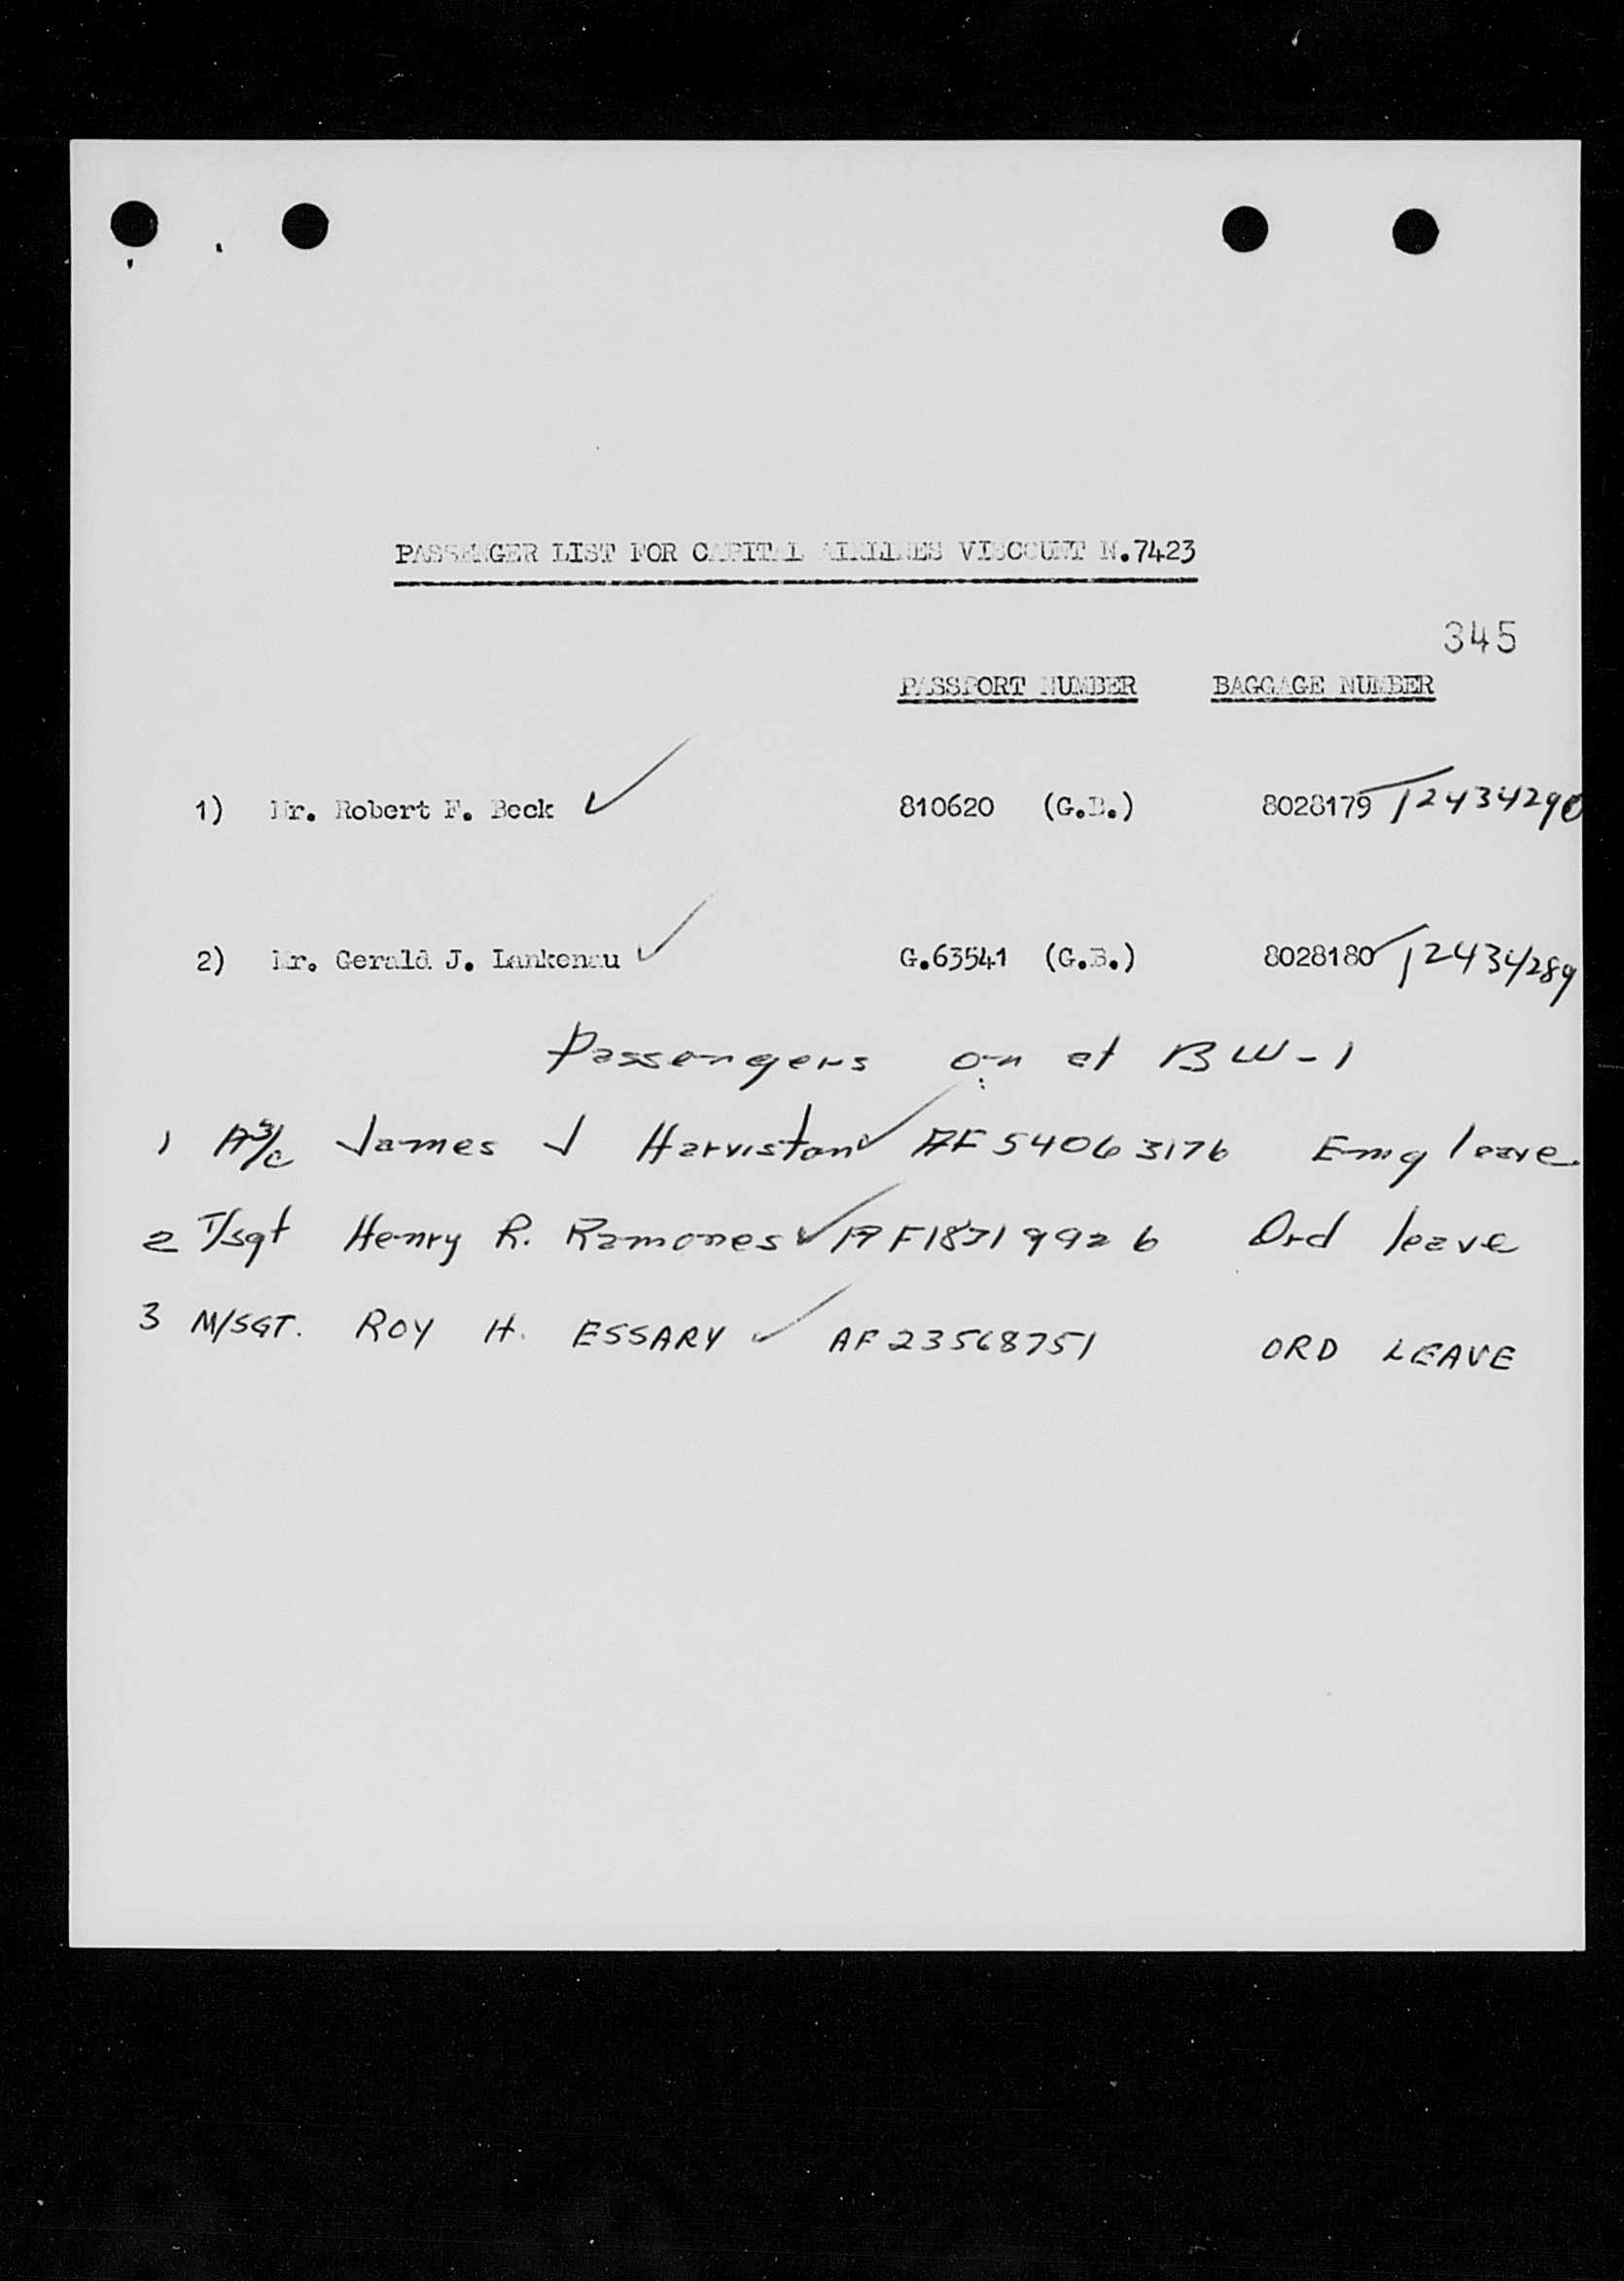 PASSENGER LIST FOR CAPITAL AIRLINES VISCOUNT N.7423
345
PASSPORT NUMBER BAGGAGE NUMBER
1) Mr. Robert F. Beck ✓ 810620 (G.B.) 8028179 12434290
2) Mr. Gerald J. Lankenau ✓ G.63541 (G.B.) 8028180 12434289
Passengers on at BW-1
1 A3/c James J Harviston ✓ AF 54063176 Emg leave
2 T/sgt Henry R. Ramones ✓ AF18719926 Ord leave
3 M/SGT. ROY H. ESSARY ✓ AF 23568751 ORD LEAVE